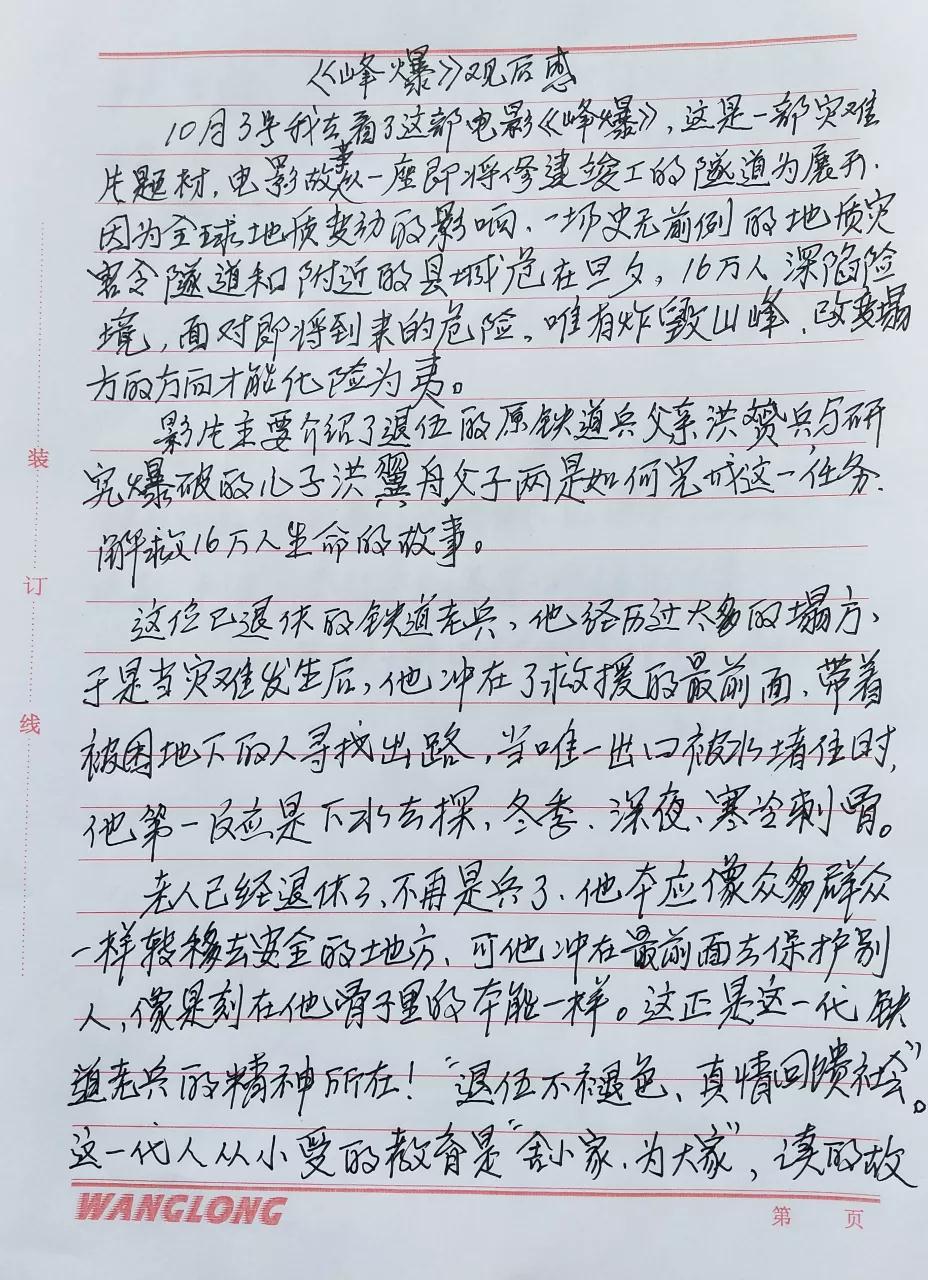 《峰爆》观后感
10月3号我去看了这部电影《峰爆》，这是一部灾难
片题材，电影故事从一座即将修建竣工的隧道为展开．
因为全球地质变动的影响、一场史无前例的地质灾
害令隧道和附近的县城危在旦夕，16万人深陷险
境，面对即将到来的危险。唯有炸毁山峰、改变塌
方的方向才能化险为夷。
影片主要介绍了退伍的原铁道兵父亲洪赟兵与研
究爆破的儿子洪翼舟父子两是如何完成这一任务．
解救16万人生命的故事。
这位已退休的铁道老兵，他经历过太多的塌方，
于是当灾难发生后，他冲在了救援的最前面、带着
被困地下的人寻找出路，当唯一出口被水堵住时，
他第一反应是下水去探，冬季、深夜、寒冷刺骨。
老人已经退休了、不再是兵了、他本应像众多群众
一样转移去安全的地方、可他冲在最前面去保护别
人，像是刻在他骨子里的本能一样。这正是这一代铁
道老兵的精神所在！“退伍不褪色、真情回馈社会”。
这一代人从小受的教育是“舍小家、为大家”，读的故
装
订
线
WANGLONG
第 页